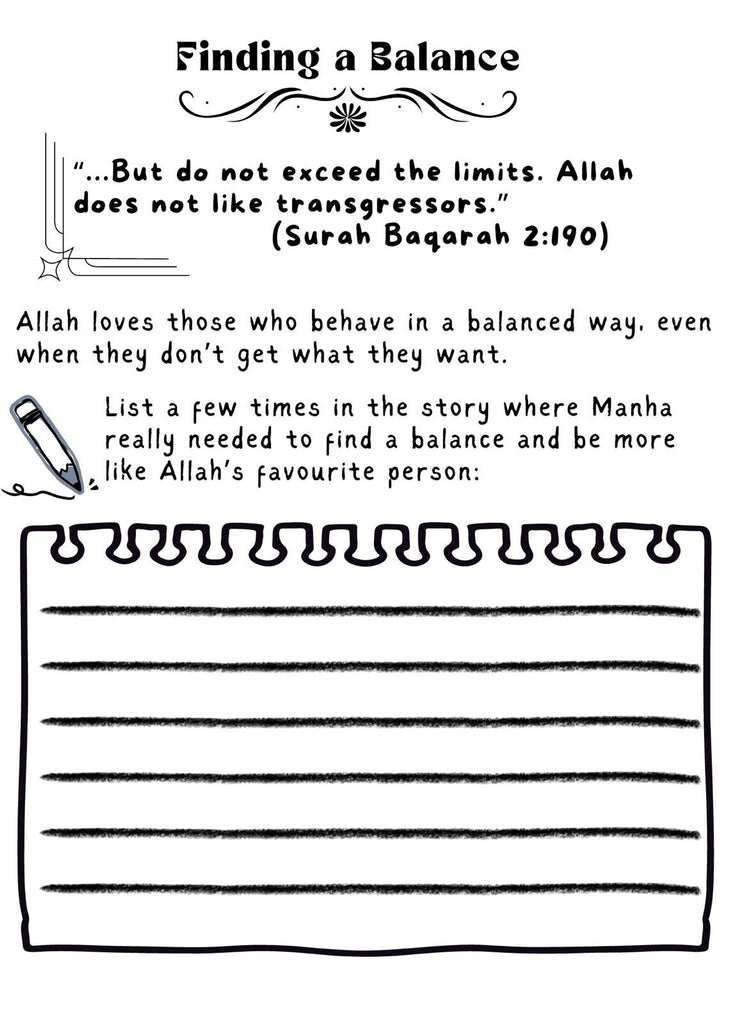 Finding a Balance
“...But do not exceed the limits. Allah
does not like transgressors.”
(Surah Baqarah 2:190)
Allah loves those who behave in a balanced way, even
when they don’t get what they want.
List a few times in the story where Manha
really needed to find a balance and be more
like Allah’s favourite person: